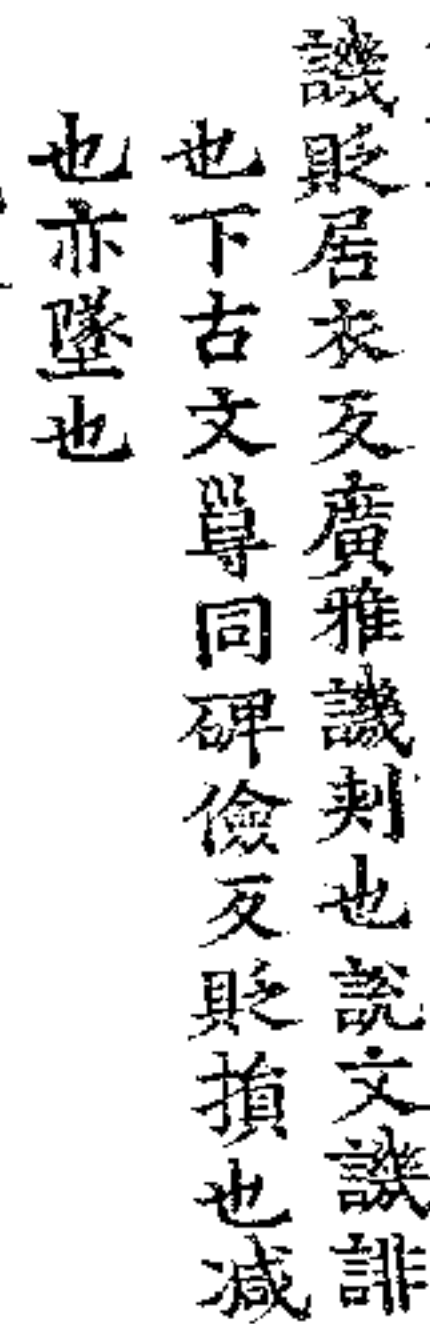 譏貶居衣反廣雅譏刾也說文譏誹
也下古文𠭥同碑儉反貶損也减
也亦墜也